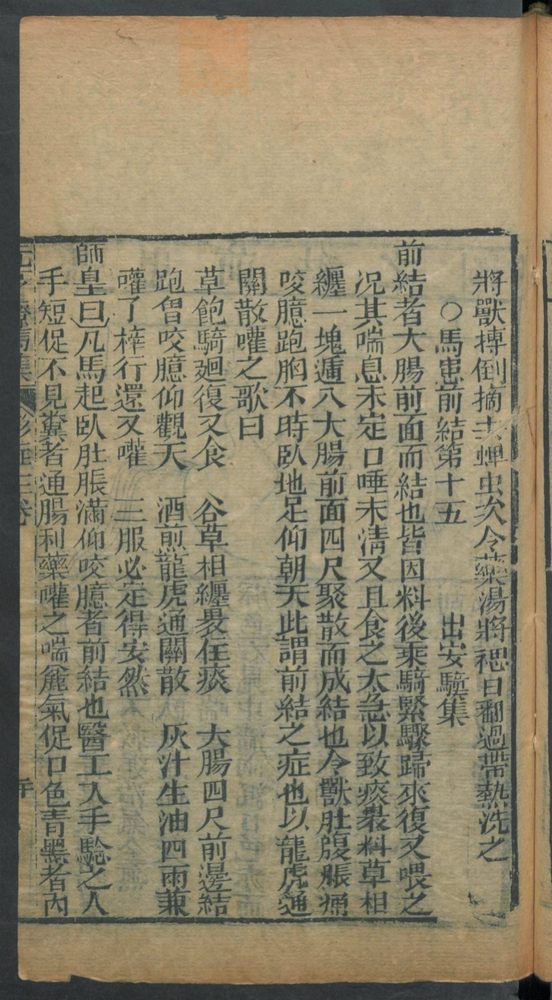 將獸摶倒摘去蟬虫次令藥湯將袍口翻過帶熱洗之
○馬患前結第十五 出安驥集
前結者大腸前面而結也皆因料後乘騎緊驟歸來復又喂之
况其喘息未定口唾未清又且食之太急以致痰裹料草相
纏一塊運入大腸前面四尺聚散而成結也令獸肚腹脹痛
咬臆跑胸不時臥地足仰朝天此謂前結之症也以龍虎通
關散嚾之歌曰
草飽騎廻復又食 谷草相纏裹住痰 大腸四尺前邊結
跑胷咬臆仰觀天 酒煎龍虎通關散 灰汁生油四兩兼
嚾了梓行還又嚾 三服必定得安然
師皇曰凡馬起臥肚脹滿仰咬臆者前結也醫工入手驗之人
手短促不見糞者通腸利藥嚾之喘麄氣促口色青黑者內